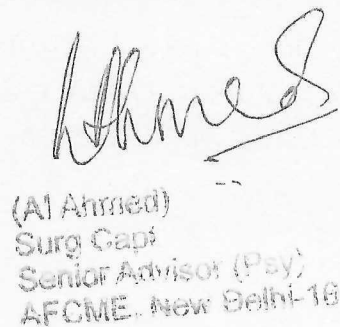 Ahmed
(AI Ahmed)
Surg Capt
Senior Advisor (Psy)
AFCME, New Delhi-10